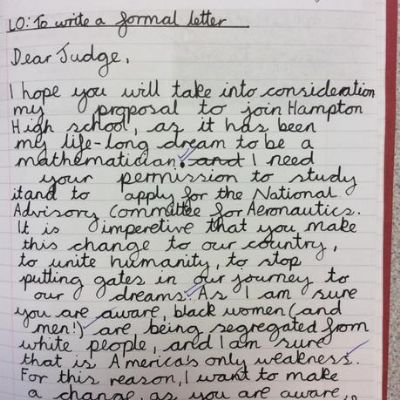 LO: To write a formal letter
Dear Judge,
I hope you will take into consideration
my proposal to join Hampton
High school, as it has been
my life-long dream to be a
mathematician. and I need
your permission to study
it and to apply for the National
Advisory Committee for Aeronautics.
It is imperetive that you make
this change to our country,
to unite humanity, to stop
putting gates in our journey to
our dreams. As I am sure
you are aware, black women (and
men!) are being segregated from
white people, and I am sure
that is America's only weakness.
For this reason, I want to make
a change, as you are aware,